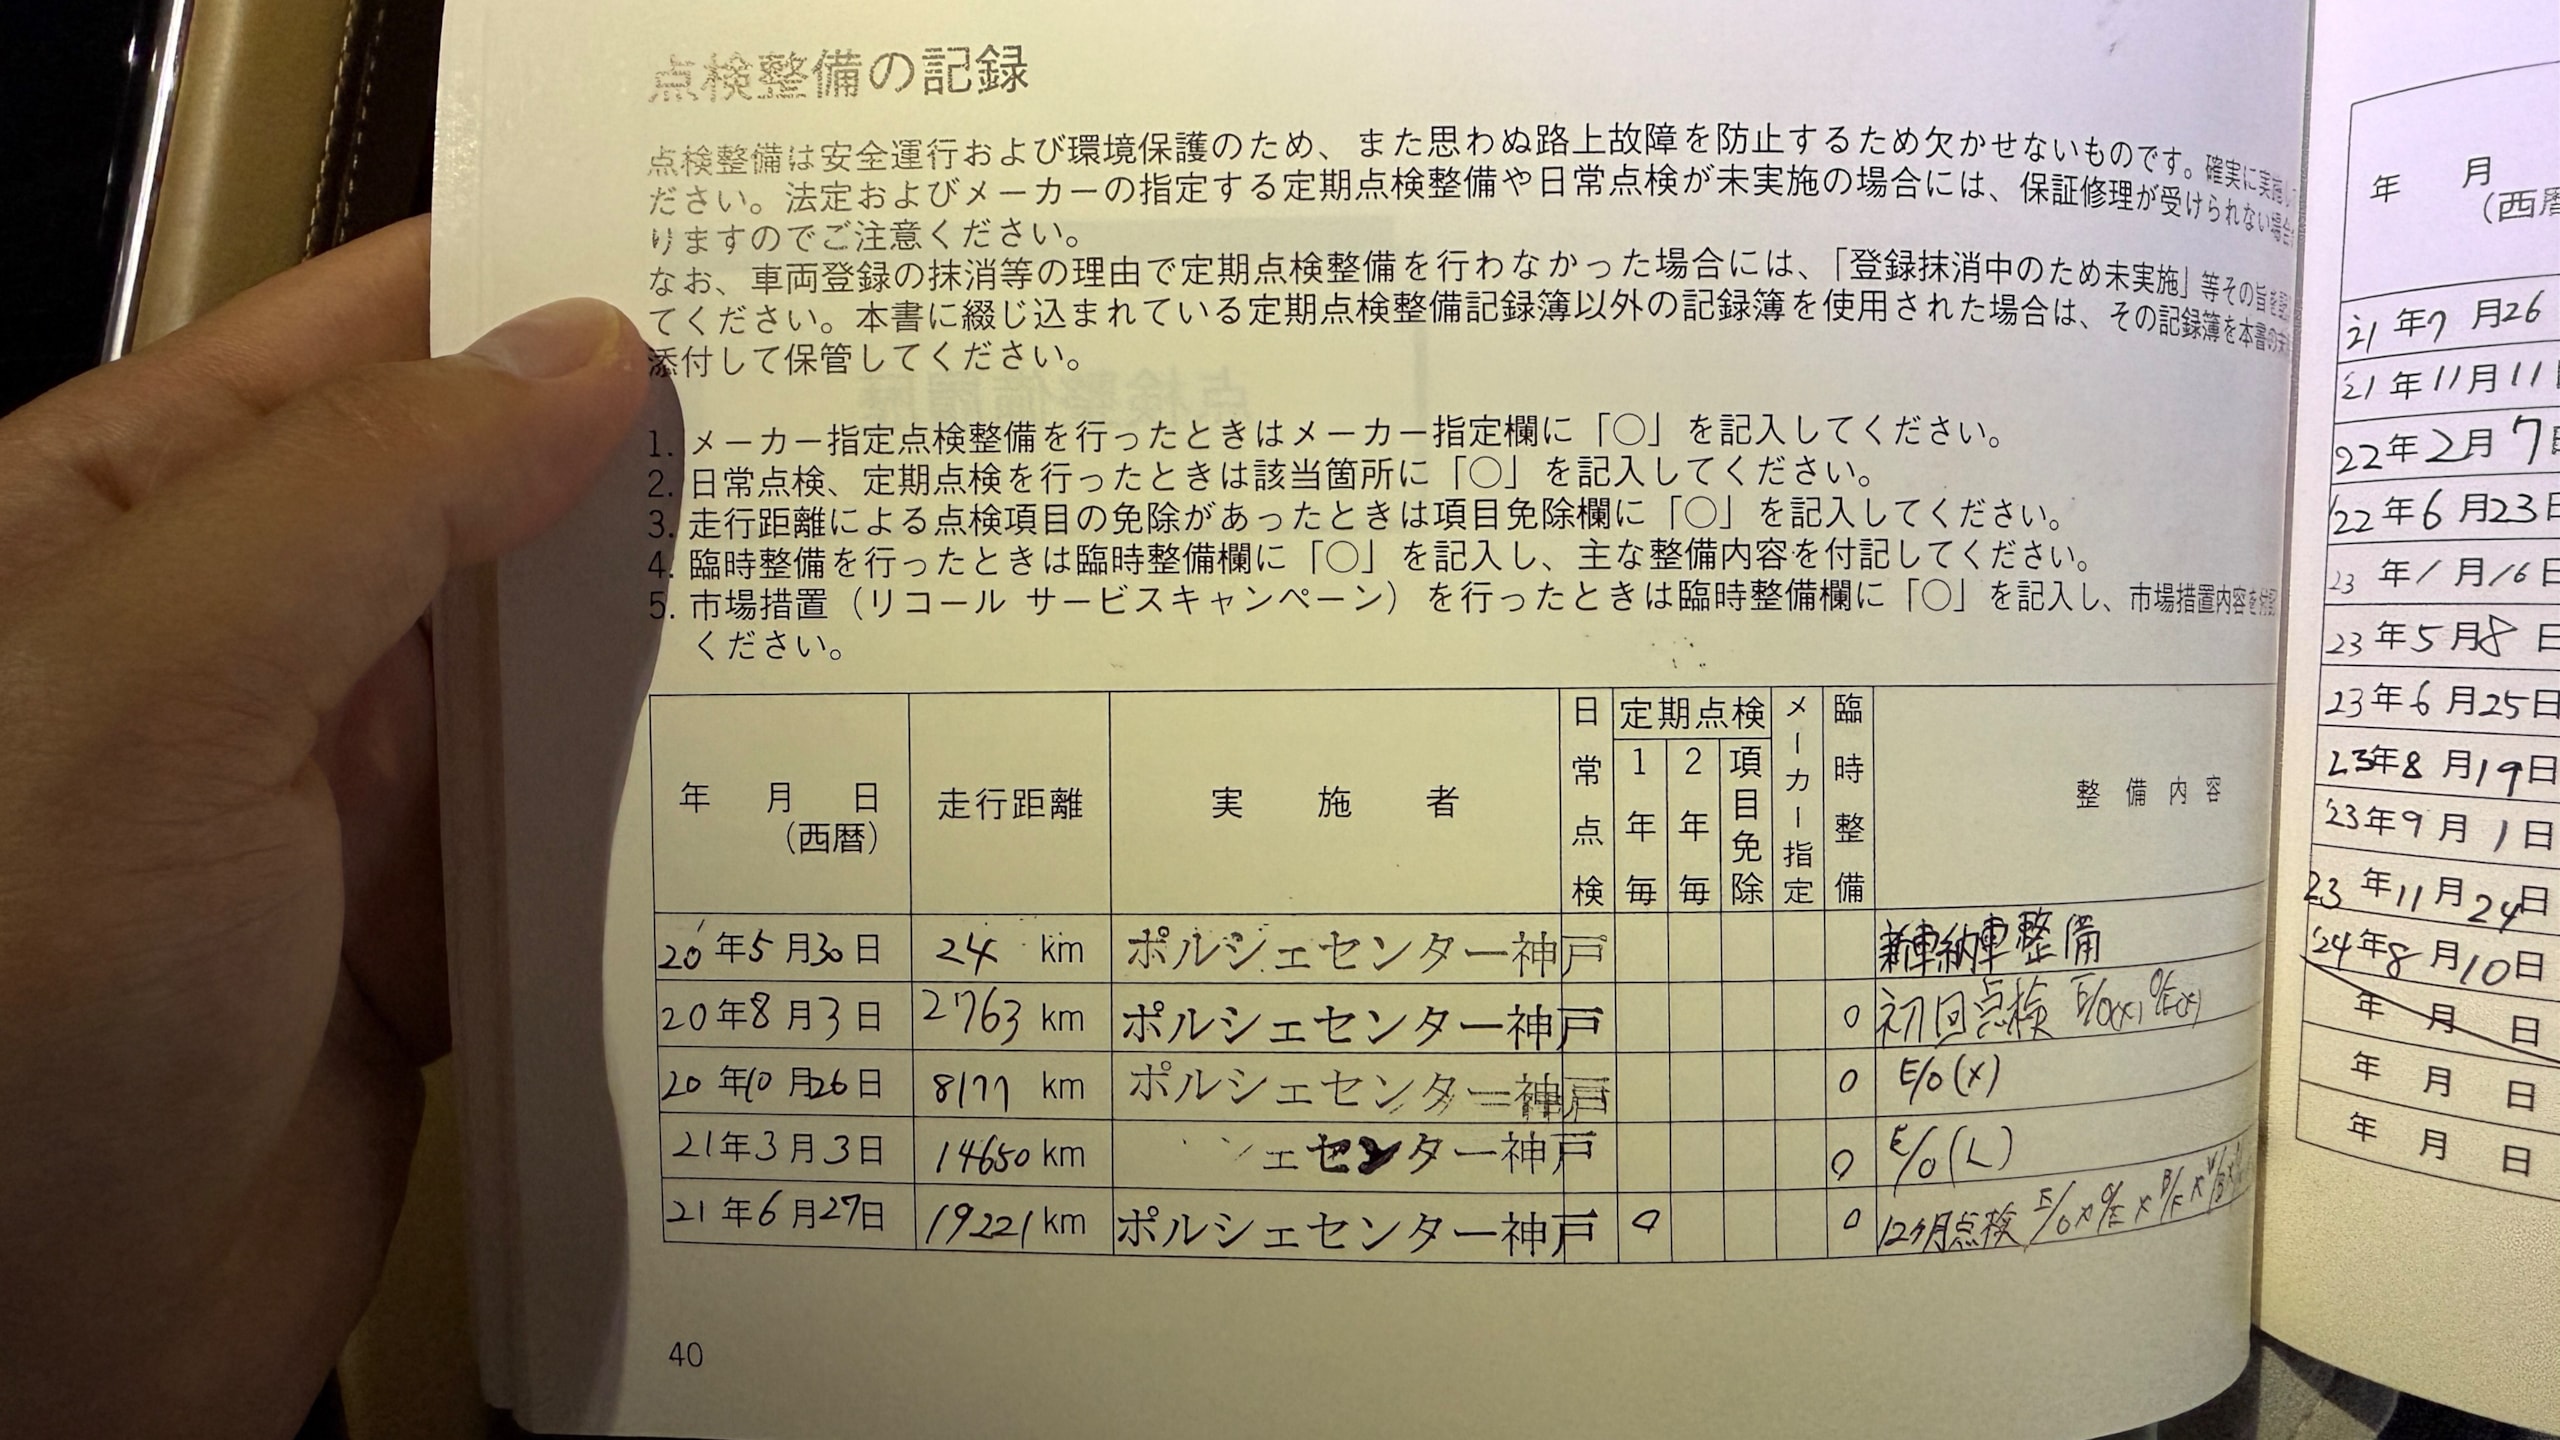 点検整備の記録
点検整備は安全運行および環境保護のため、また思わぬ路上故障を防止するため欠かせないものです。確実に実施し
ださい。法定およびメーカーの指定する定期点検整備や日常点検が未実施の場合には、保証修理が受けられない場合
りますのでご注意ください。
なお、車両登録の抹消等の理由で定期点検整備を行わなかった場合には、「登録抹消中のため未実施」等その旨を
てください。本書に綴じ込まれている定期点検整備記録簿以外の記録簿を使用された場合は、その記録簿を本書の
添付して保管してください。
1. メーカー指定点検整備を行ったときはメーカー指定欄に「○」を記入してください。
2. 日常点検、定期点検を行ったときは該当箇所に「○」を記入してください。
3. 走行距離による点検項目の免除があったときは項目免除欄に「○」を記入してください。
4. 臨時整備を行ったときは臨時整備欄に「○」を記入し、主な整備内容を付記してください。
5. 市場措置（リコール サービスキャンペーン）を行ったときは臨時整備欄に「○」を記入し、市場措置内容を付記
ください。
年 月 日 (西暦) 走行距離 実施者 日常点検 定期点検 1年毎 2年毎 項目免除 メーカー指定 臨時整備 整備内容
20年5月30日 24 km ポルシェセンター神戸 新車納車整備
20年8月3日 2763 km ポルシェセンター神戸 ○ 初回点検
20年10月26日 8177 km ポルシェセンター神戸 ○ E/O(X)
21年3月3日 14650 km ェセンター神戸 ○ E/O(L)
21年6月27日 19221 km ポルシェセンター神戸 ○ ○ 12ヶ月点検
40
年 月
(西暦
'21年7月26
'21年11月11日
22年2月7日
'22年6月23日
23年1月16日
23年5月8日
23年6月25日
23年8月19日
'23年9月1日
23年11月24日
'24年8月10日
年 月 日
年 月 日
年 月 日